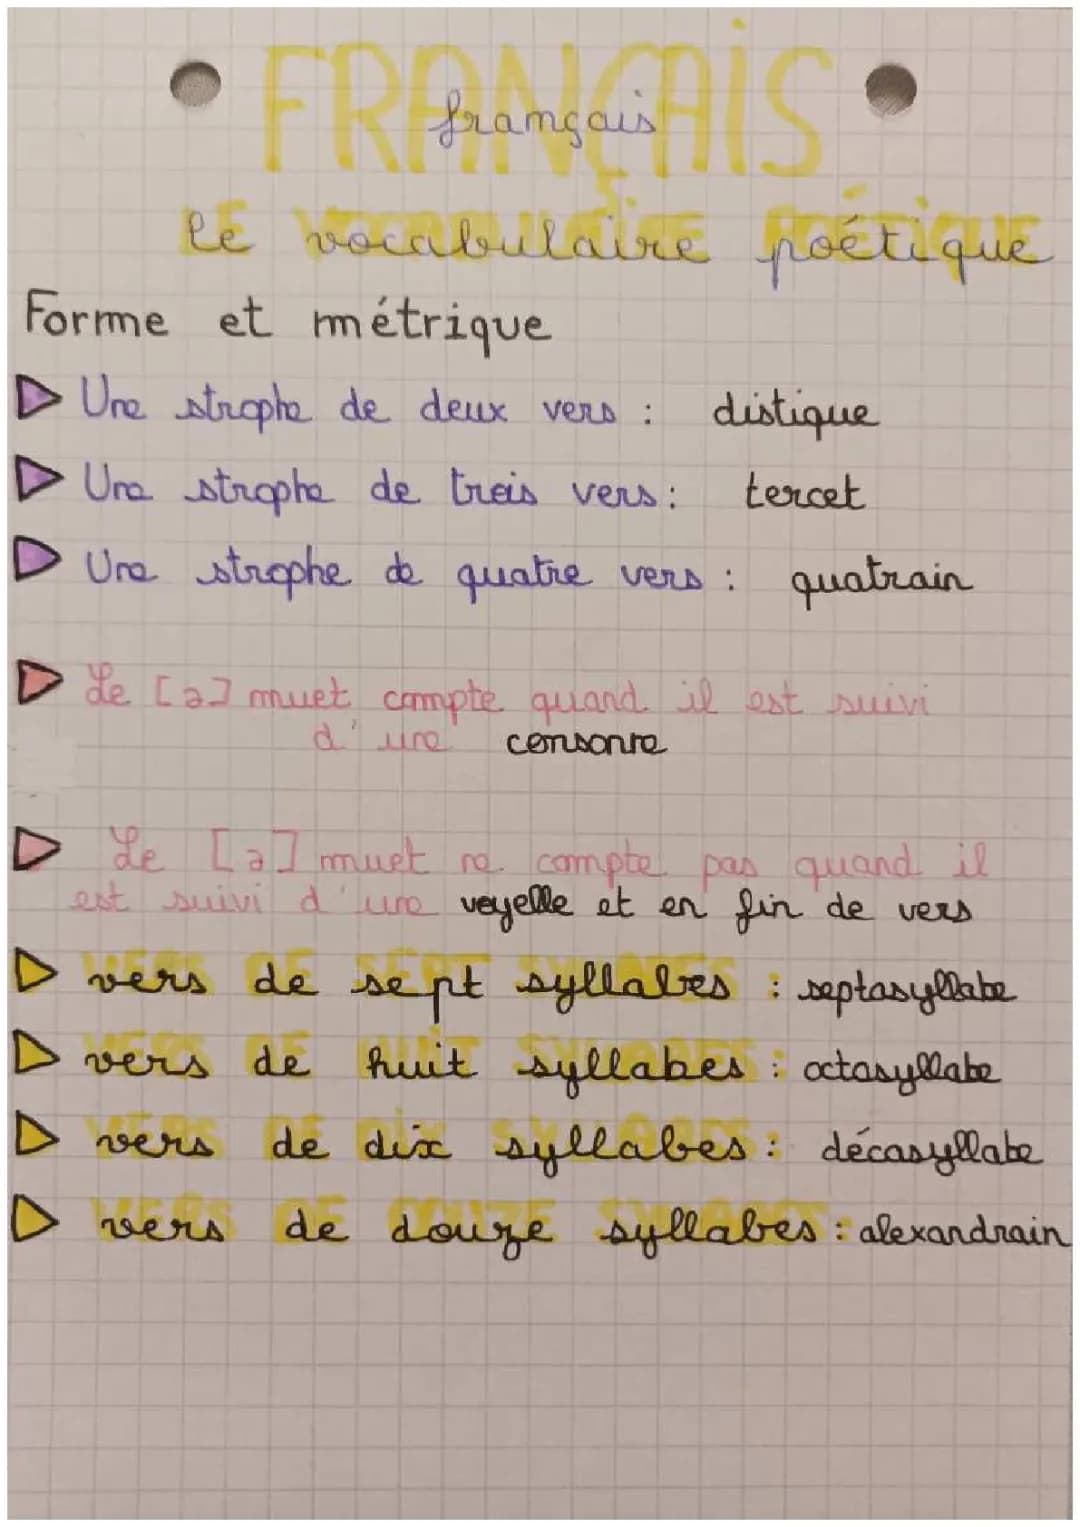 FRANÇAIS
français
le vocabulaire poétique
Forme et métrique
Une strophe de deux vers : distique
Une strophe de trois vers : tercet
Une strophe de quatre vers : quatrain
Le [ə] muet compte quand il est suivi
d'une consonne
Le [ə] muet ne compte pas quand il
est suivi d'une voyelle et en fin de vers
vers de sept syllabes : septasyllabe
vers de huit syllabes : octasyllabe
vers de dix syllabes : décasyllabe
vers de douze syllabes : alexandrain